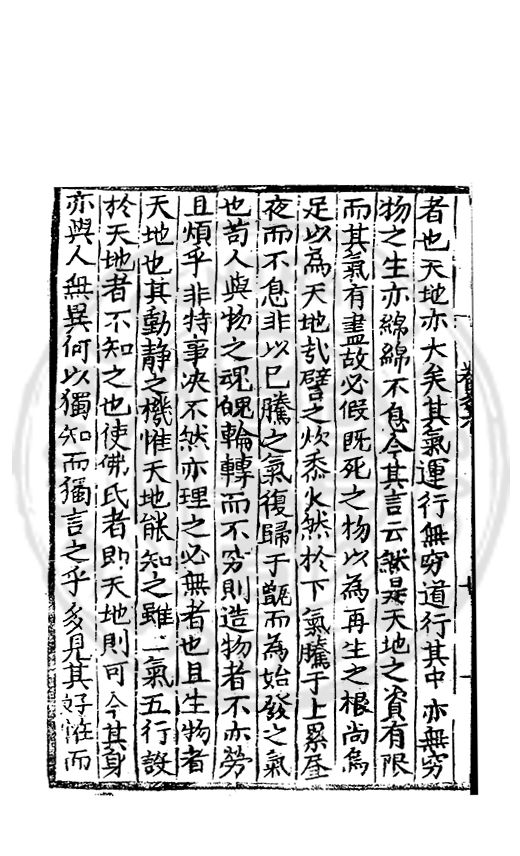 者也天地亦大矣其氣運行無窮道行其中亦無窮
物之生亦綿綿不息今其言云然是天地之資有限
而其氣有盡故必假既死之物以為再生之根尚烏
足以為天地哉譬之炊黍火然於下氣騰于上累晝
夜而不息非以已騰之氣復歸于甑而為始發之氣
也苟人與物之魂魄輪轉而不窮則造物者不亦勞
且煩乎非特事决不然亦理之必無者也且生物者
天地也其動靜之機惟天地能知之雖二氣五行設
於天地者不知之也使佛氏者即天地則可今其身
亦與人無異何以獨知而獨言之乎多見其好怪而